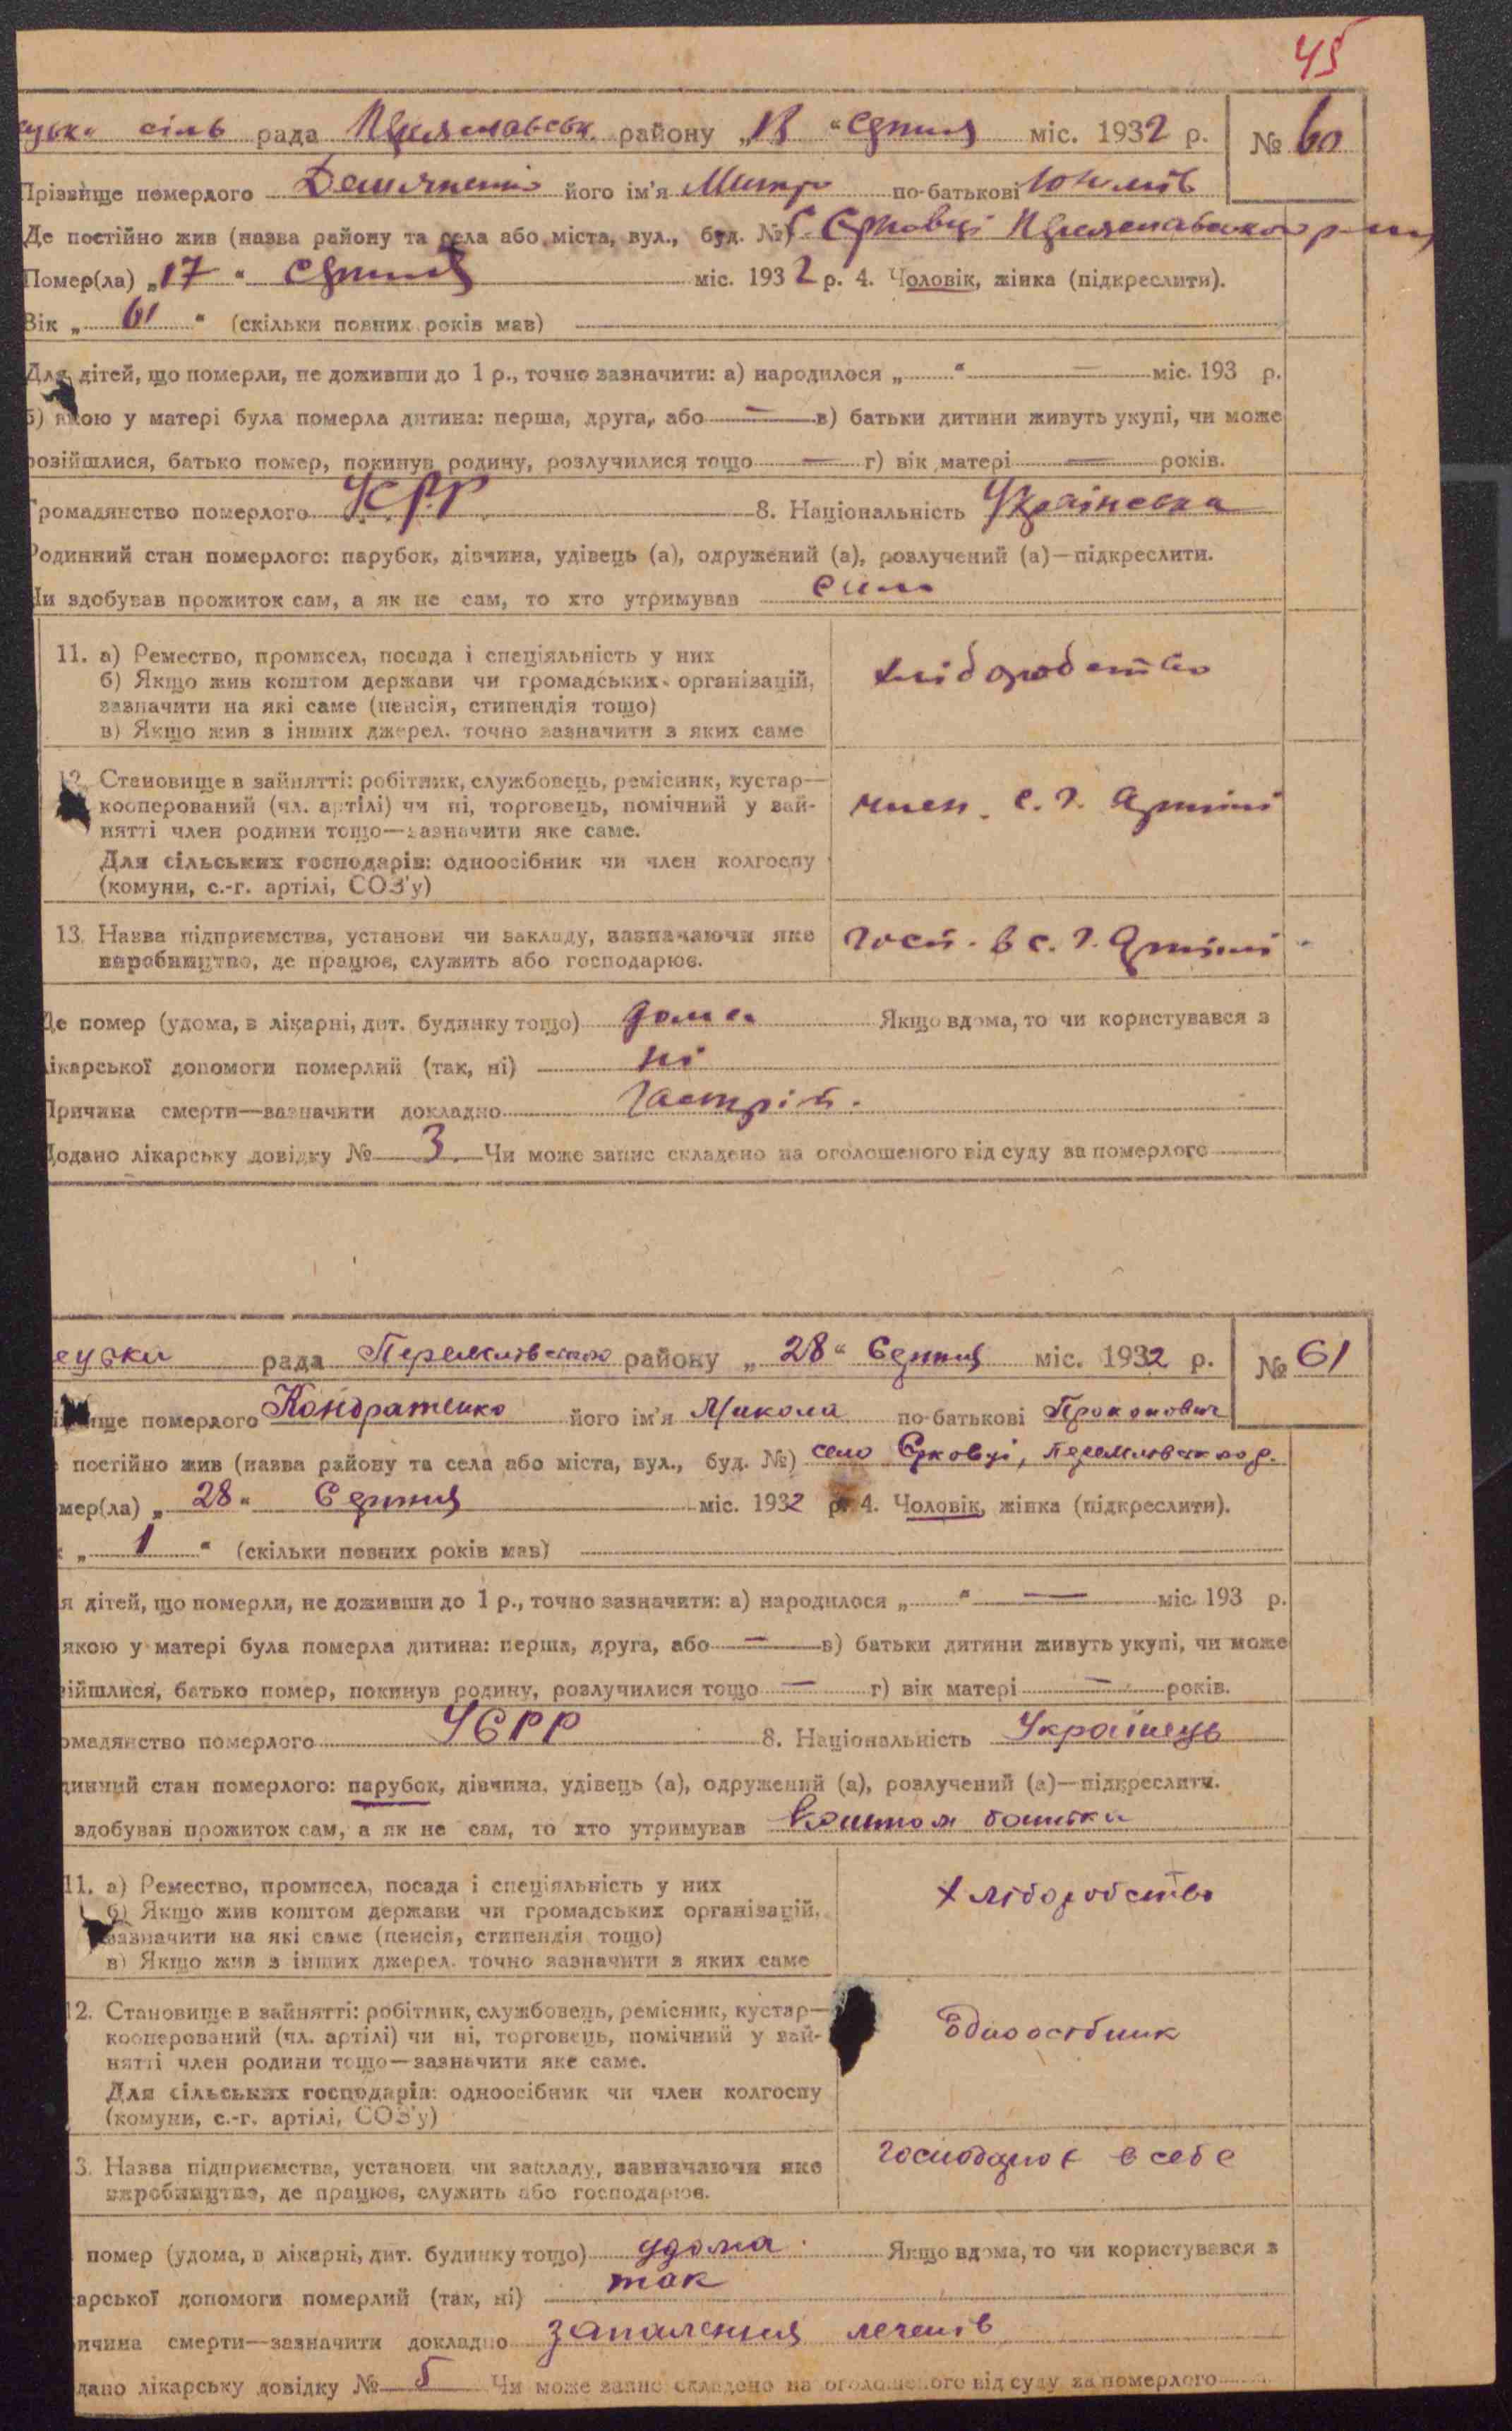 45
сіль рада району „ “ Серпня міс. 1932 р. № 60
Прізвище померлого його ім'я Митро по-батькові
Де постійно жив (назва району та села або міста, вул., буд. №) с Єрковці
Помер(ла) „ 17 “ Серпня міс. 1932 р. 4. Чоловік, жінка (підкреслити).
Вік „ 61 “ (скільки повних років мав)
Для дітей, що померли, не доживши до 1 р., точно зазначити: а) народилося „ “ — міс. 193 р.
б) якою у матері була померла дитина: перша, друга, або — в) батьки дитини живуть укупі, чи може
розійшлися, батько помер, покинув родину, розлучилися тощо — г) вік матері — років.
Громадянство померлого УСРР 8. Національність Українська
Родинний стан померлого: парубок, дівчина, удівець (а), одружений (а), розлучений (а)—підкреслити.
Чи здобував прожиток сам, а як не сам, то хто утримував
11. а) Ремество, промисел, посада і спеціяльність у них
б) Якщо жив коштом держави чи громадських організацій,
зазначити на які саме (пенсія, стипендія тощо)
в) Якщо жив з інших джерел, точно зазначити з яких саме
хліборобство
12. Становище в зайнятті: робітник, службовець, ремісник, кустар—
кооперований (чл. артілі) чи ні, торговець, помічний у зай-
нятті член родини тощо—зазначити яке саме.
Для сільських господарів: одноосібник чи член колгоспу
(комуни, с.-г. артілі, СОЗ'у)
член с. г. Артілі
13. Назва підприємства, установи чи закладу, зазначаючи яке
виробництво, де працює, служить або господарює.
Госп. в с. г. Артілі
Де помер (удома, в лікарні, дит. будинку тощо) дома Якщо вдома, то чи користувався з
лікарської допомоги померлий (так, ні) ні
Причина смерти—зазначити докладно Гастріт.
Додано лікарську довідку № 3. Чи може запис складено на оголошеного від суду за померлого
рада району „ 28 “ Серпня міс. 1932 р. № 61
ище померлого Кондратенко його ім'я Микола по-батькові Прокопович
постійно жив (назва району та села або міста, вул., буд. №) село Єрковці,
мер(ла) „ 28 “ Серпня міс. 1932 р. 4. Чоловік, жінка (підкреслити).
„ 1 “ (скільки повних років мав)
я дітей, що померли, не доживши до 1 р., точно зазначити: а) народилося „ “ — міс. 193 р.
якою у матері була померла дитина: перша, друга, або — в) батьки дитини живуть укупі, чи може
ійшлися, батько помер, покинув родину, розлучилися тощо — г) вік матері — років.
омадянство померлого УСРР 8. Національність Українець
динний стан померлого: парубок, дівчина, удівець (а), одружений (а), розлучений (а)—підкреслити.
здобував прожиток сам, а як не сам, то хто утримував Коштом батька
11. а) Ремество, промисел, посада і спеціяльність у них
б) Якщо жив коштом держави чи громадських організацій,
зазначити на які саме (пенсія, стипендія тощо)
в) Якщо жив з інших джерел, точно зазначити з яких саме
хліборобство
12. Становище в зайнятті: робітник, службовець, ремісник, кустар—
кооперований (чл. артілі) чи ні, торговець, помічний у зай-
нятті член родини тощо—зазначити яке саме.
Для сільських господарів: одноосібник чи член колгоспу
(комуни, с.-г. артілі, СОЗ'у)
Одноосібник
3. Назва підприємства, установи чи закладу, зазначаючи яке
виробництво, де працює, служить або господарює.
господарює в себе
помер (удома, в лікарні, дит. будинку тощо) удома. Якщо вдома, то чи користувався з
арської допомоги померлий (так, ні) так
ичина смерти—зазначити докладно запалення легенів
дано лікарську довідку № 5 Чи може запис складено на оголошеного від суду за померлого